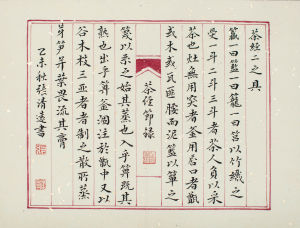 茶經二之具
籝一曰籃一曰籠一曰筥以竹織之
受一斗二斗三斗者茶人負以采
茶也灶無用突者釜用唇口者甑
或木或瓦匪腰而泥籃以箄之
茶經節錄
篾以系之始其蒸也入乎箄既其
熟也出乎箄釜涸注於甑中又以
谷木枝三亞者者制之散所蒸
芽笋并葉畏流其膏
乙未秋張清遠書